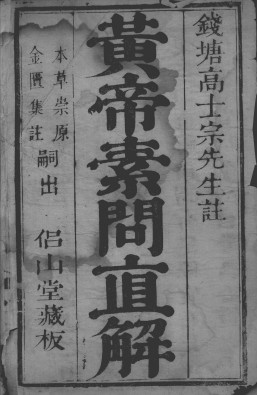 錢塘高士宗先生註
黃帝素問直解
本草崇原
金匱集註
嗣出
侶山堂藏板